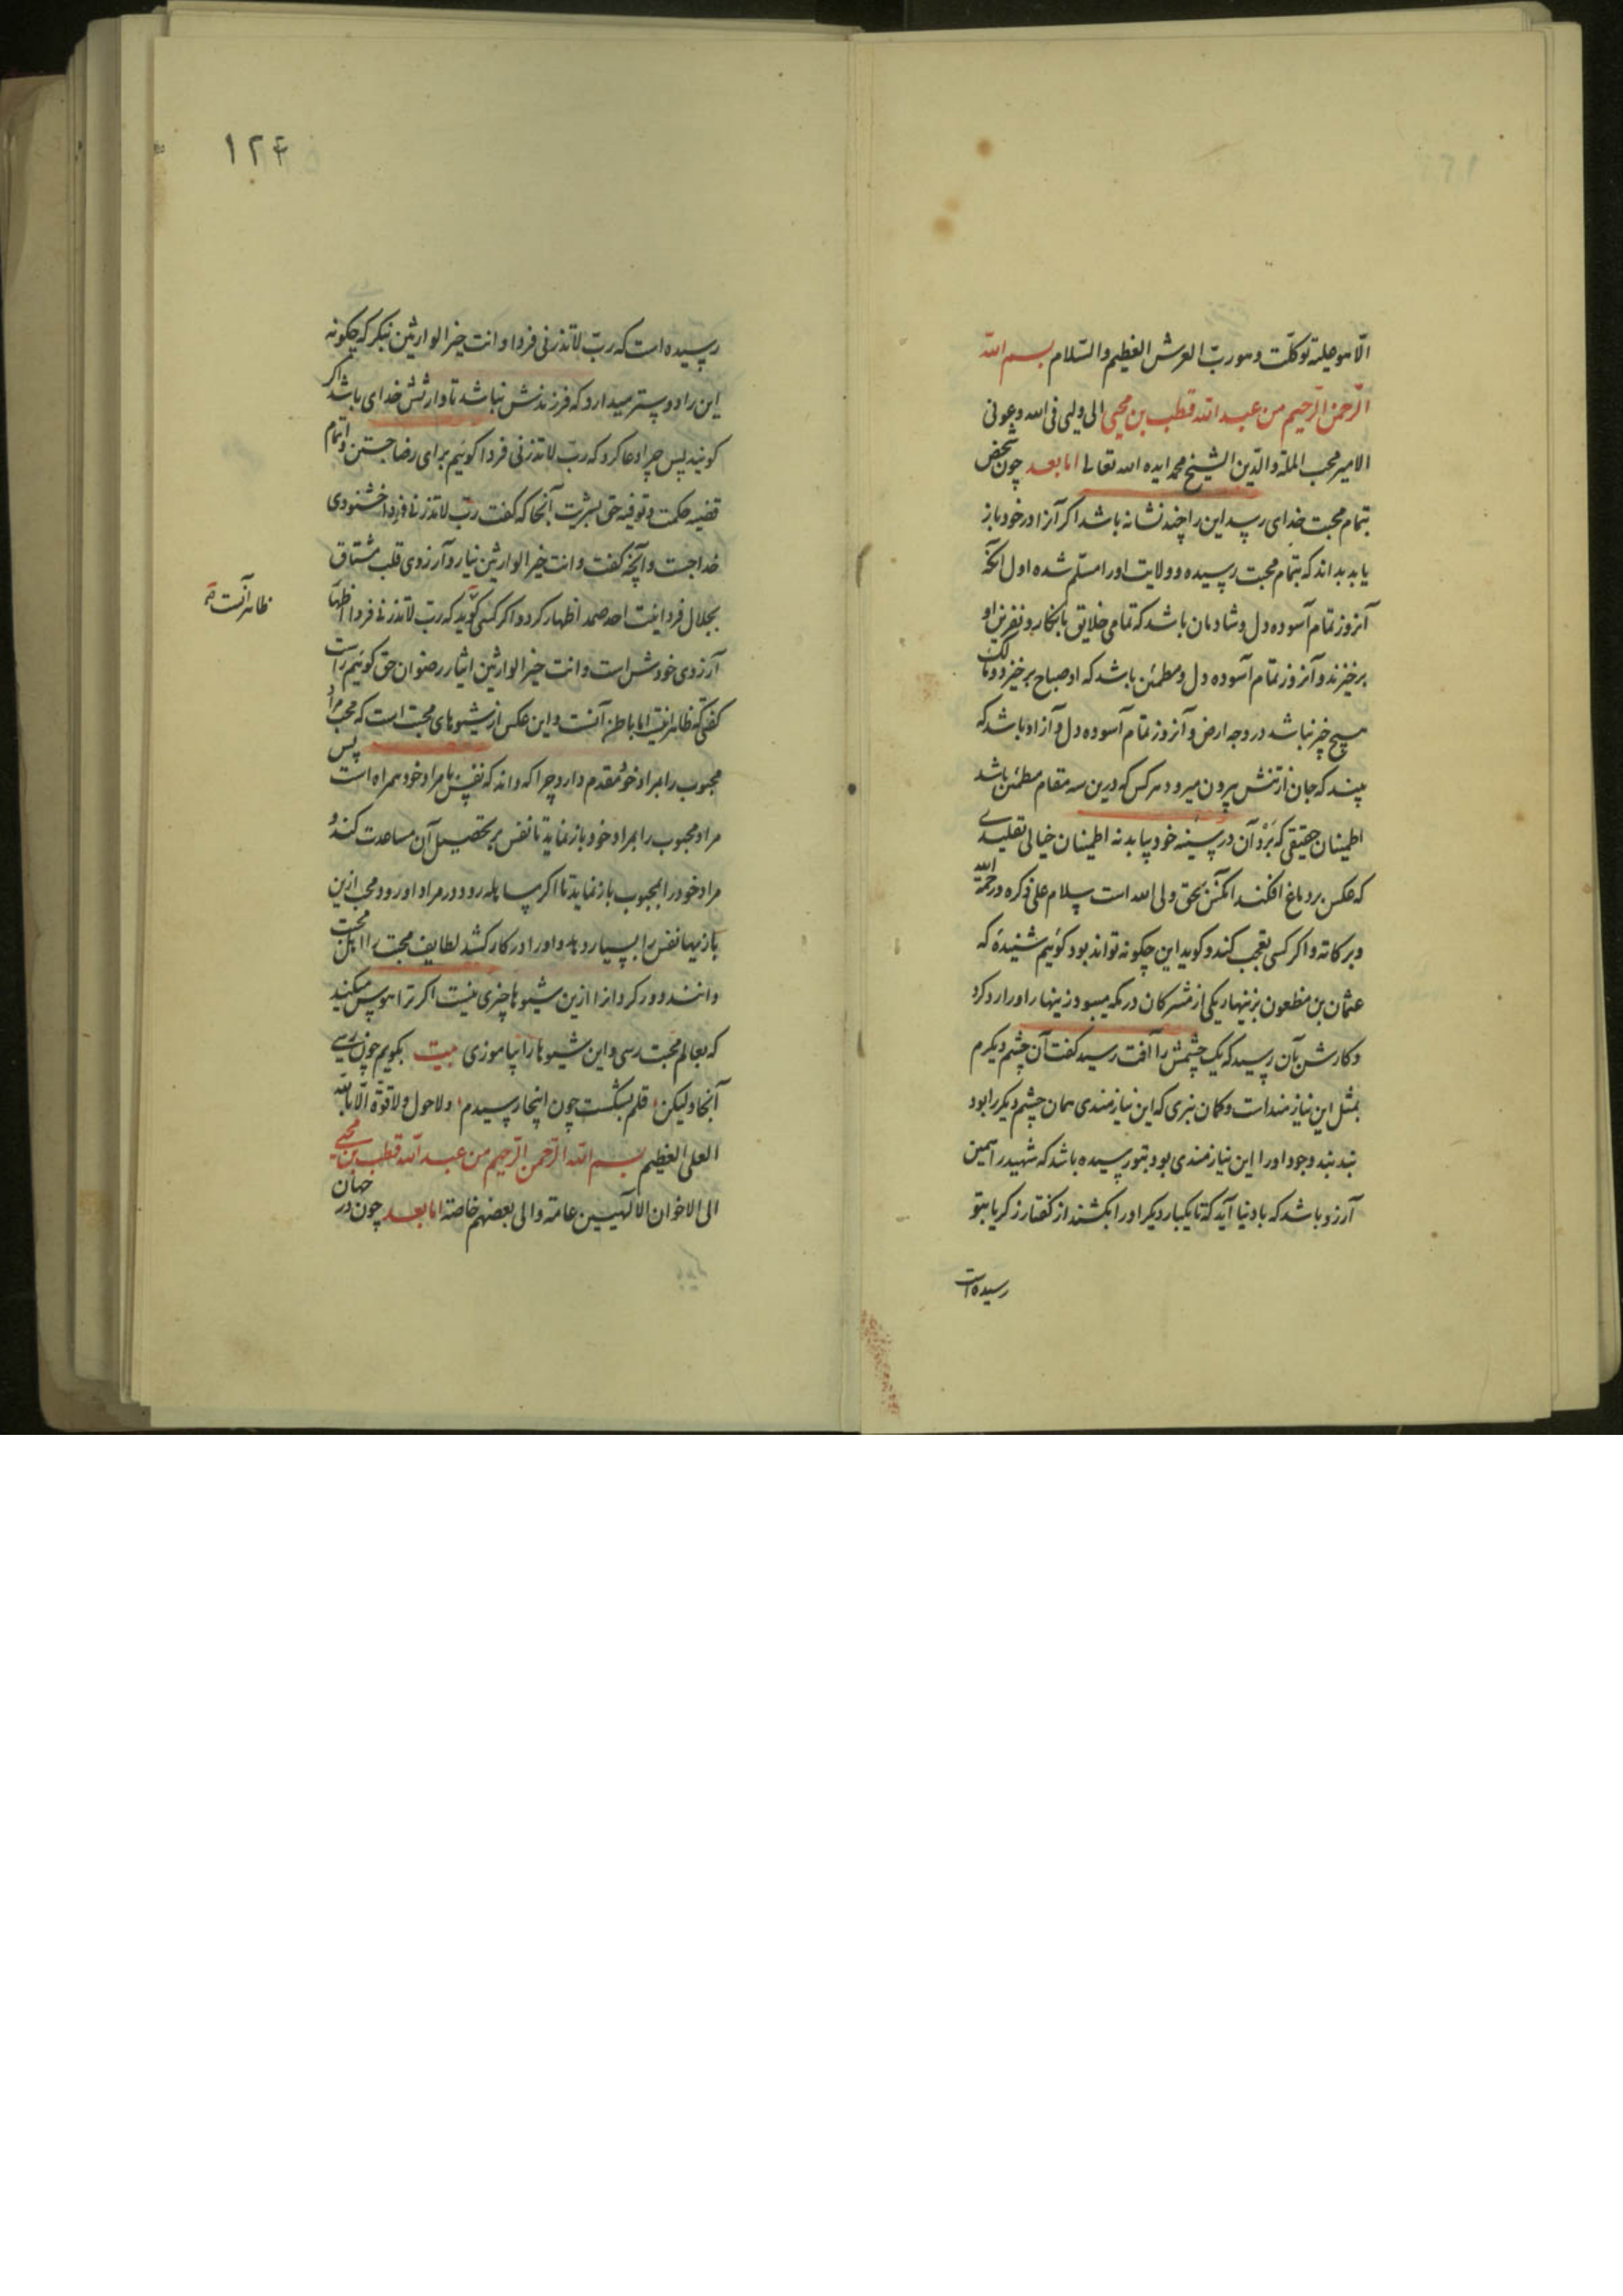 الّا هو علیه توکلت و هو ربّ العرش العظیم والسّلام بسم اللّه
الرّحمن الرّحیم من عبد اللّه قطب بن محیی الی ولیی فی اللّه و عونی
الامیر محب الملة والدّین الشیخ محمد ایده اللّه تعالی اما بعد چون شخص
بتمام محبت خدای رسید این را چند نشانه باشد اکر آنرا در خود باز
یابد بداند که بتمام محبت رسیده و ولایت او را مسلّم شده اول آنکه
آنروز تمام آسوده دل و شادمان باشد که تمامی خلایق بانکار و نفرین او
برخیزند و آنروز تمام آسوده دل و مطمئن باشد که او صباح برخیزد و مالک
هیچ چیز نباشد در وجه ارض و آنروز تمام آسوده دل و آزاد باشد که
بیند که جان از تنش بیرون میرود هرکس که درین سه مقام مطمئن باشد
اطمینان حقیقی که بَرْد آن در سینه خود بیابد نه اطمینان خیالی تقلیدے
که عکس بر دماغ افکند آنکس بحق ولی اللّه است سلام علی ذکره و رحمة اللّه
و برکاته و اکر کسی تعجب کند و کوید این چکونه تواند بود کوئیم شنیدۀ که
عثمان بن مظعون بزینهار یکی از مشرکان در مکه میبود زینهار او را رد کرد
و کارش بآن رسید که یک چشمش را آفت رسید کفت آن چشم دیکرم
بمثل این نیازمند است و کمان نبری که این نیازمندی همان چشم دیکر را بود
بند بند وجود او را این نیازمندی بود بتو رسیده باشد که شهید را همین
آرزو باشد که با دنیا آید که تا یکبار دیکر او را بکشند از کفتار زکریا بتو
رسیده است
۱۲۴
رسیده است که ربّ لا تذرنی فردا و انت خیر الوارثین نیکر که چکونه
این را دوستر میدارد که فرزندش نباشد تا وارثش خدای باشد اکر
کویند پس چرا دعا کرد که ربّ لا تذرنی فردا کوئیم برای رضا جستن و اتمام
قضیه حکمت و توفیه حق بشریت آنجا که کفت ربّ لا تذرنی فردا خشنودی
خدا جست و آنچه کفت و انت خیر الوارثین نیاز و آرزوی قلب مشتاق
بجلال فردانیت احد صمد اظهار کرد و اکر کسی کوید که ربّ لا تذرنی فردا اظهار
آرزوی خودش است و انت خیر الوارثین ایثار رضوان حق کوئیم راست
کفتی که ظاهر اینست اما باطن آنست و این عکس از شیوهای محبت است که محب مراد
ظاهر آنست
محبوب را بمراد خود مقدم دارد چرا که داند که نفس با مراد خود همراه است پس
مراد محبوب را بمراد خود باز نماید تا نفس بر تحصیل آن مساعدت کند و
مراد خود را بمحبوب باز نماید تا اکر مساهله رود در مراد او رود محب ازین
بازیها نفس را بسیار دهد و او را در کار کشد لطایف محبت را اهل محبت
دانند دور کرد از ازین شیوها چیزی نیست اکر ترا هوس میکند
که بعالم محبت رسی و این شیوها را بیاموزی بیت بکویم چون رسی
آنجا ولیکن قلم بشکست چون اینجا رسیدم ولا حول ولا قوّة الّا باللّه
العلی العظیم بسم اللّه الرّحمن الرّحیم من عبد اللّه قطب بن محیی
الی الاخوان الالٰهیین عامة و الی بعضهم خاصة اما بعد چون در جهان